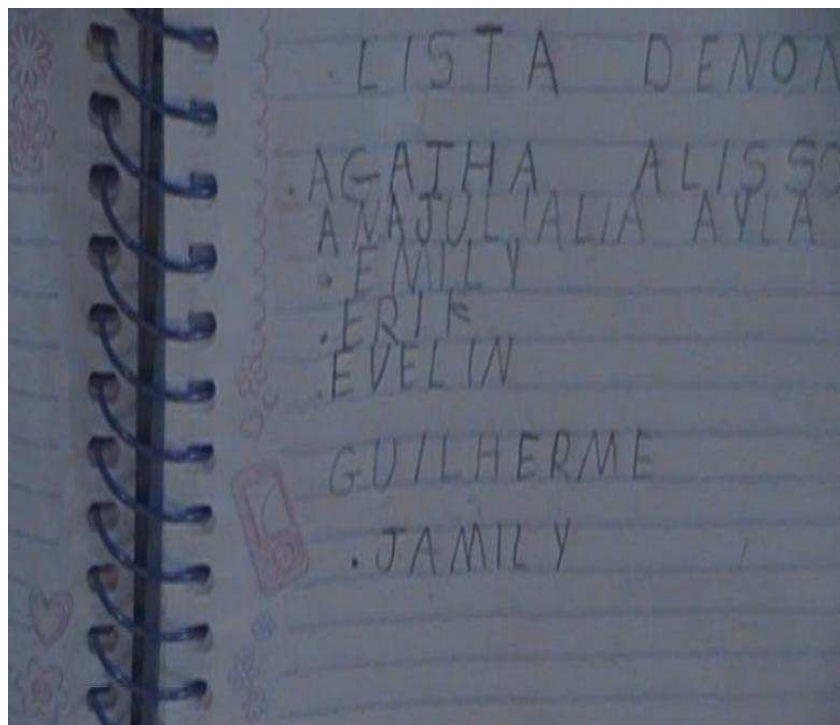 . LISTA DENOM
. AGATHA ALISSO
ANAJULIALIA AYLA
. EMILY
. ERIK
. EVELIN
GUILHERME
. JAMILY